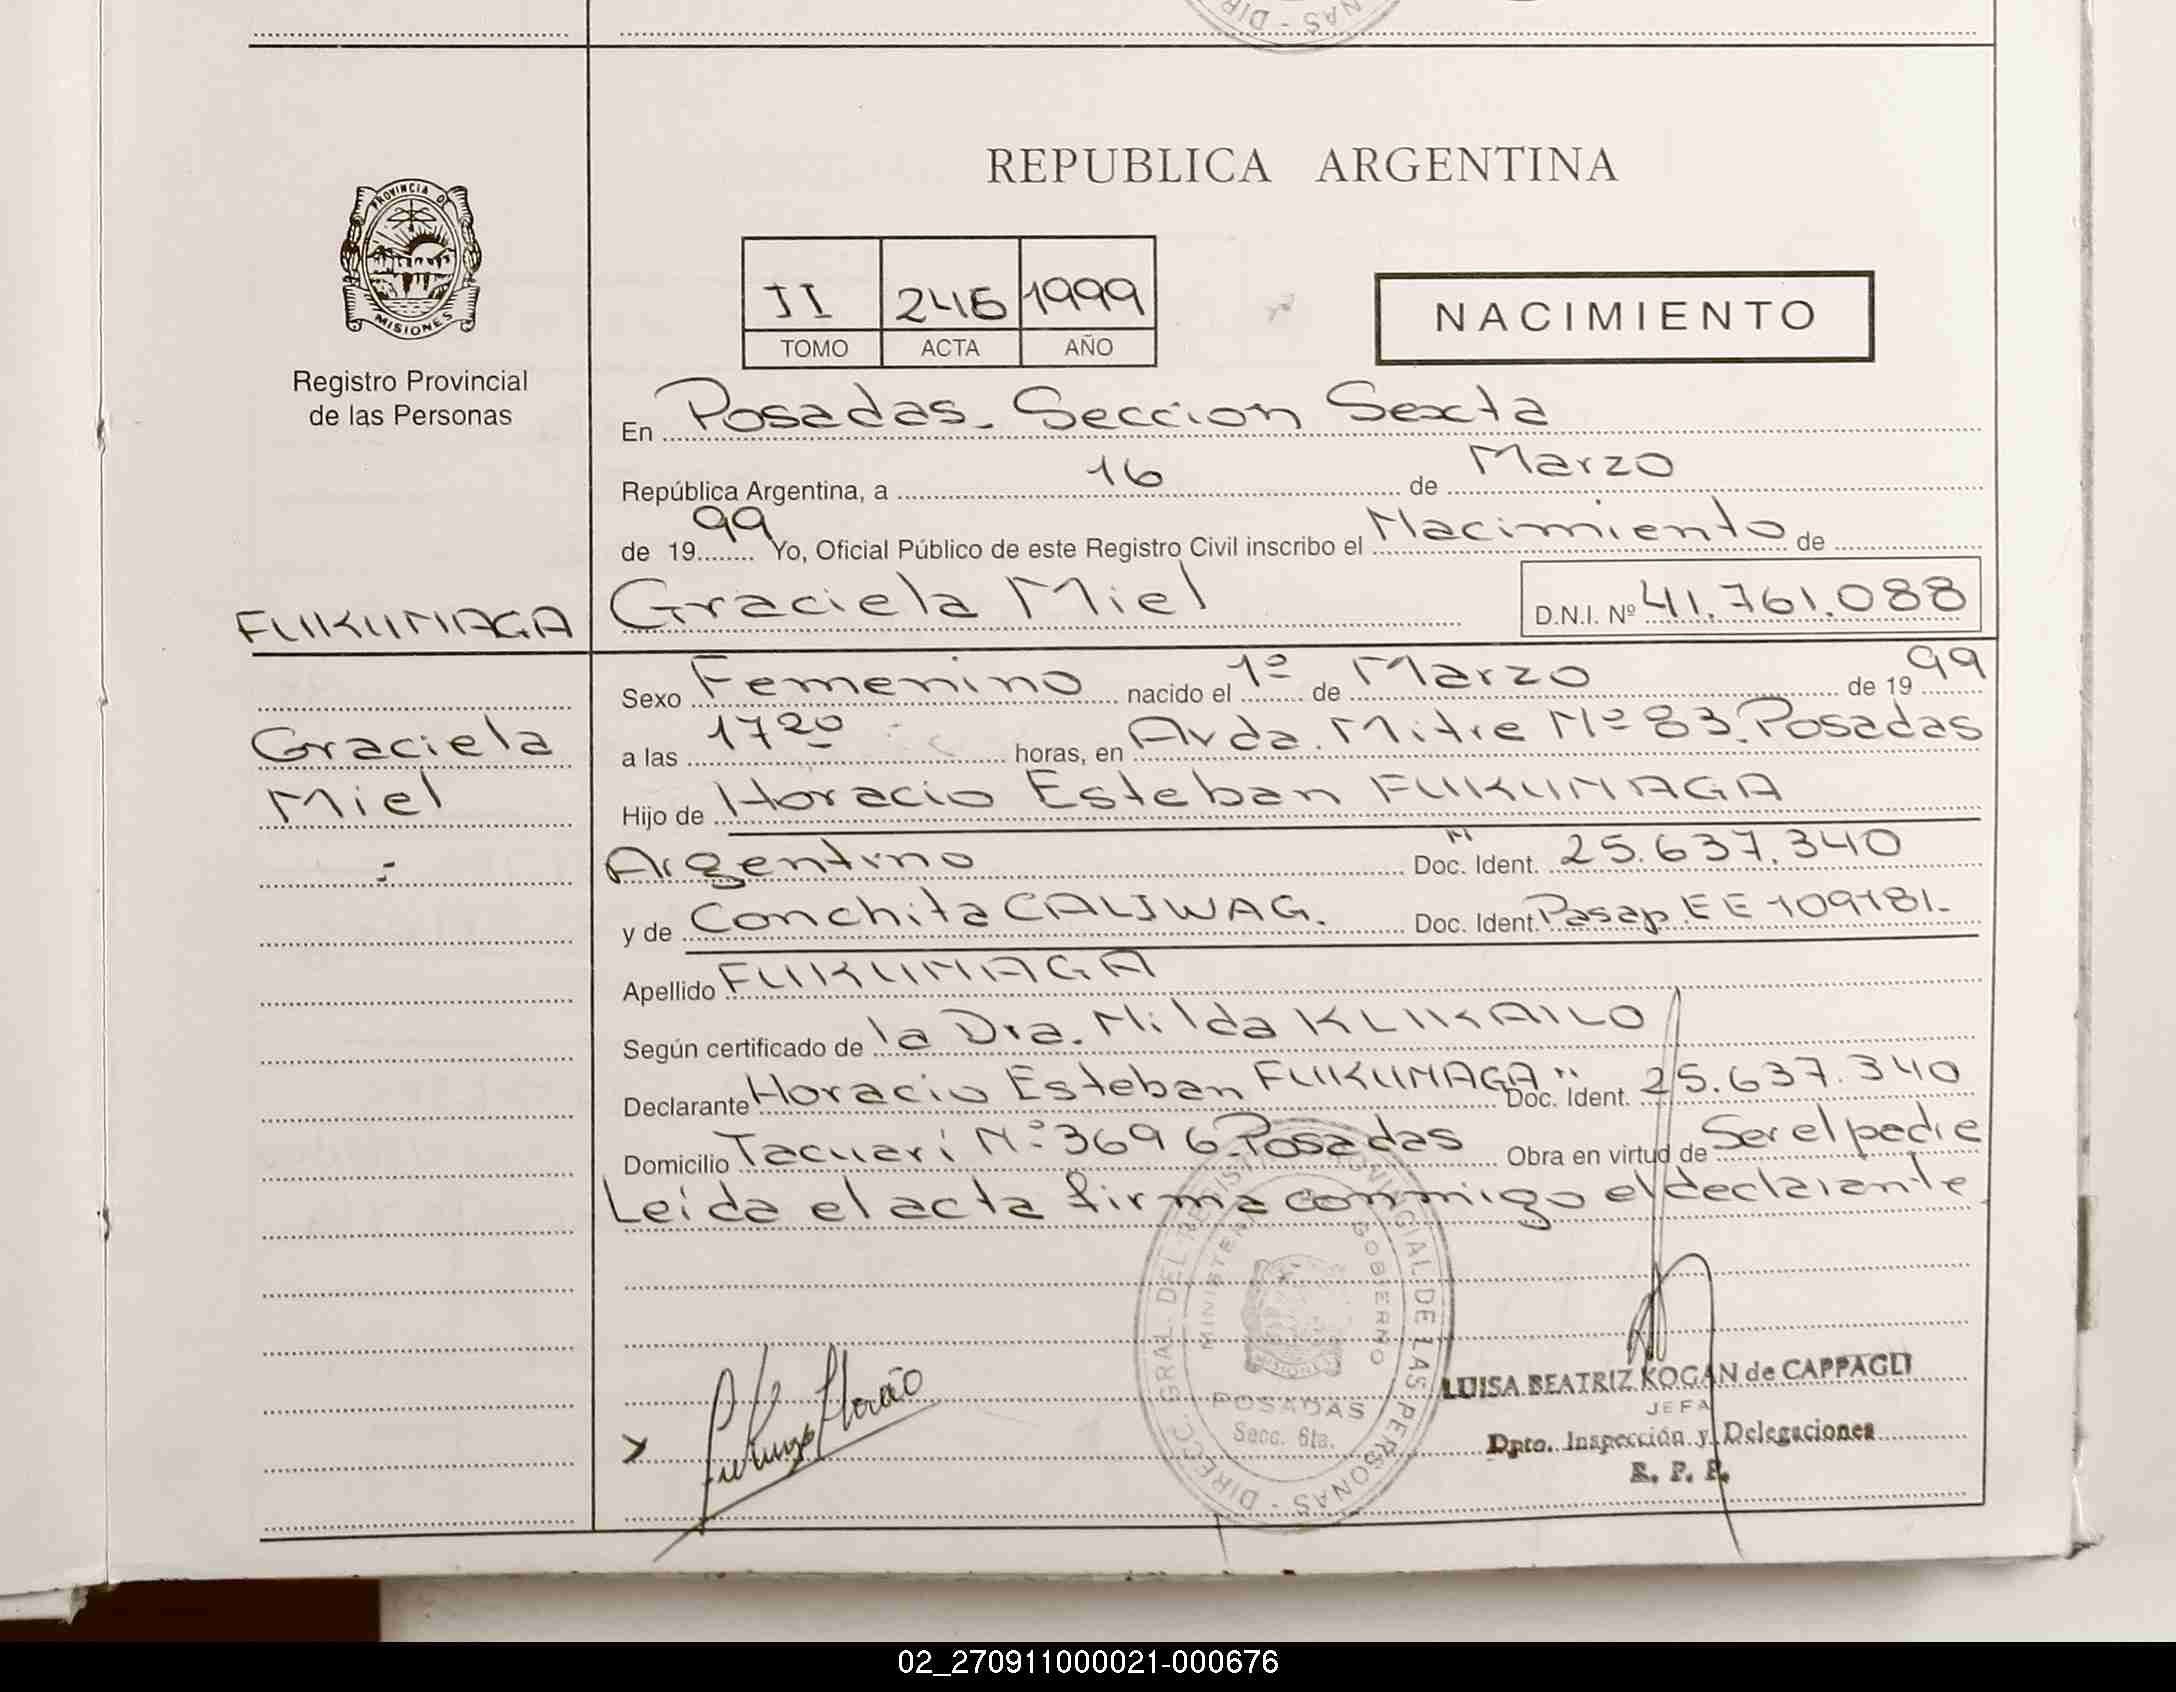 REPUBLICA ARGENTINA
PROVINCIA DE
MISIONES
Registro Provincial
de las Personas
II 246 1999
TOMO ACTA AÑO
NACIMIENTO
En Posadas. Seccion Sexta
República Argentina, a 16 de Marzo
de 1999 Yo, Oficial Público de este Registro Civil inscribo el Nacimiento de
FUKUNAGA Graciela Miel D.N.I. Nº 41.761.088
Sexo Femenino nacido el 1º de Marzo de 1999
Graciela
Miel
a las 17 20 horas, en Avda. Mitre Nº 83. Posadas
Hijo de Horacio Esteban FUKUNAGA
Argentino Doc. Ident. 25.637.340
y de Conchita CALIWAG. Doc. Ident. Pasap. EE 109181.
Apellido FUKUNAGA
Según certificado de la Dra. Nilda KUKAILO
Declarante Horacio Esteban FUKUNAGA Doc. Ident. 25.637.340
Domicilio Tacuarí Nº 3696 Posadas Obra en virtud de Ser el padre
Leída el acta firma conmigo el declarante.
DIRECC. GRAL. DEL REGISTRO PROVINCIAL DE LAS PERSONAS
MINISTERIO GOBIERNO
POSADAS
Secc. 6ta.
LUISA BEATRIZ KOGAN de CAPPAGLI
JEFA
Dpto. Inspección y Delegaciones
R. P. P.
02_270911000021-000676